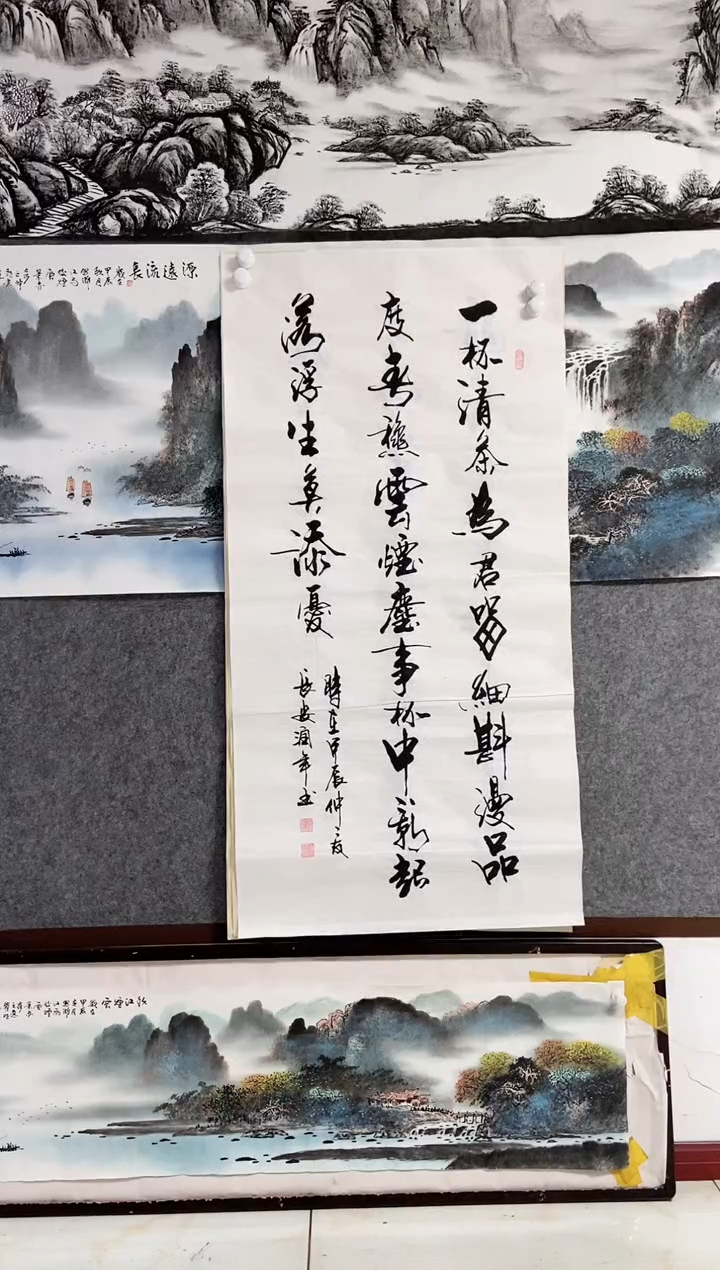 一杯清茶為君留細斟漫品
度春穐雲煙塵事杯中影起
落浮生莫添憂
時在甲辰仲夏
長安潤年書
源遠流長
秋江煙雲